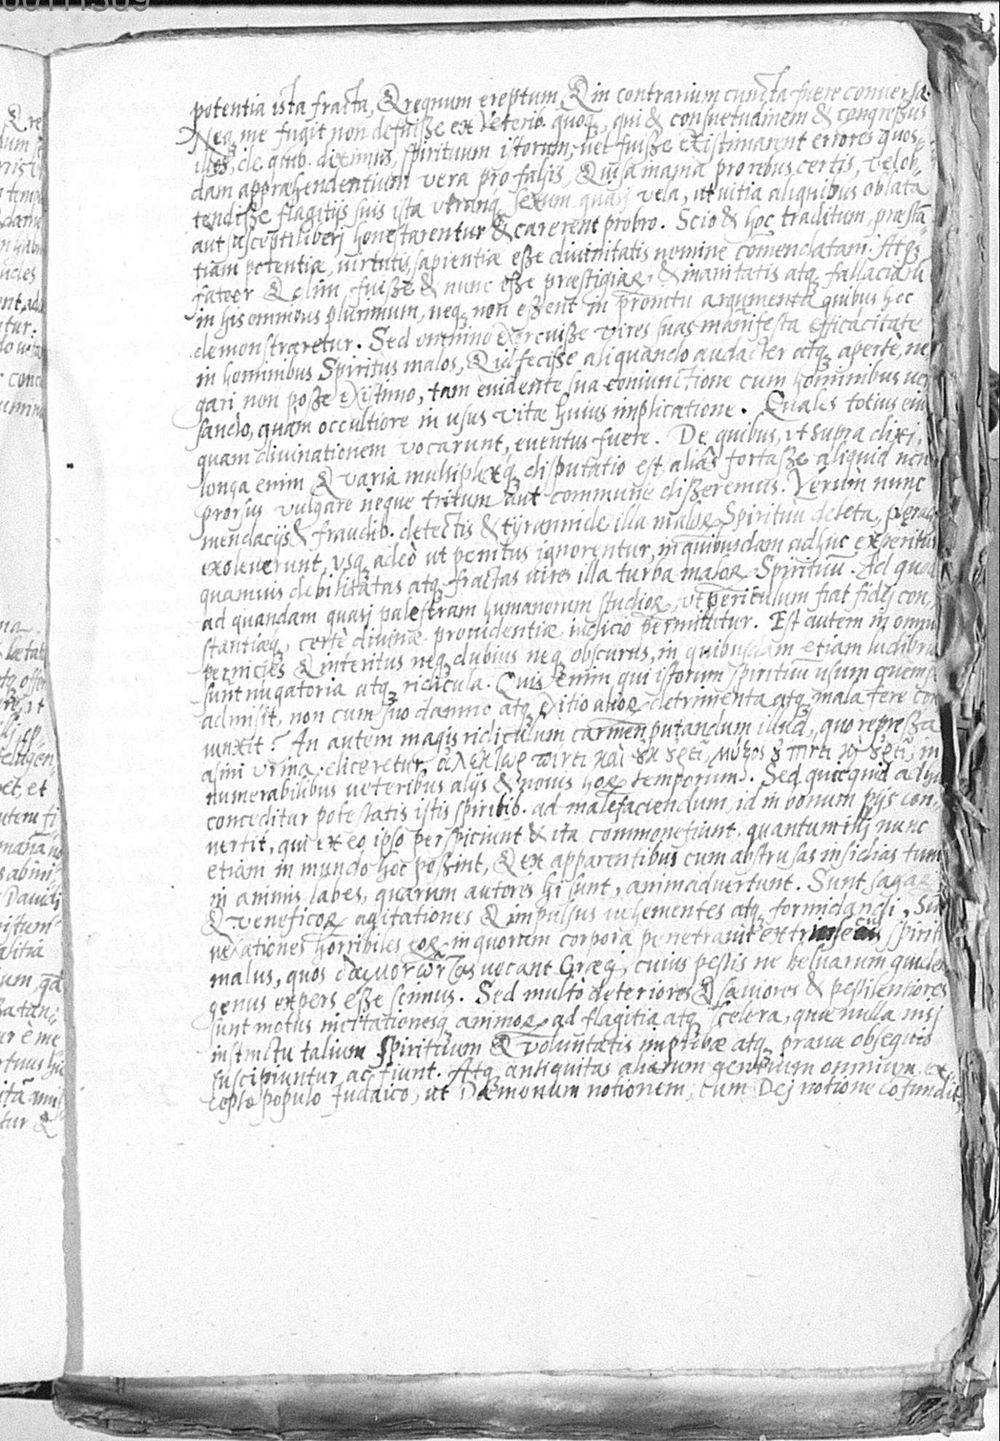 potentia ista fracta, & regnum ereptum, & in contrarium cuncta fuere conversa.
Neq; me fugit non defuisse ex veterib. quoq;, qui & consuetudinem & congressus
illos, de quib. diximus, spirituum istorum, vel fuisse existimarent errores quos-
dam apprahendentium vera pro falsis, & usa mania pro rebus certis, vel ob-
tendisse flagitijs suis ista utranq; sexum quasi vela, ut vitia aliquibus oblata
aut suscepti liberi honestarentur & carerent probro. Scio & hoc traditum, præsta
tiam potentiæ, virtutis, sapientiæ esse divinitatis nomine comendatam. Atq;
fateor & olim fuisse & nunc esse præstigiar. & inanitatis atq; fallaciaru
in his omnibus plurimum, neq; non essent in promtu argumenta quibus hoc
demonstraretur. Sed omnino exercuisse vires suas manifesta efficacitate
in hominibus Spiritus malos, & id fecisse aliquando audacter atq; apertè, ne
gari non posse existimo, tam evidente sua coniunctione cum hominibus ver
sando, quàm occultiore in usus vitæ huius implicatione. Quales totius eius
quam divinationem vocarunt, eventus fuere. De quibus, ut supra dixi,
longa enim & varia multiplexq; disputatio est, aliàs fortasse aliquid non
prorsus vulgare neque tritum aut commune disseremus. Verùm nunc
mendacijs & fraudib. detectis & tyrannide illa malor. Spirituu deleta, pleraq;
exoleverunt, usq; adeò ut penitus ignorentur, in quibusdam adhuc experitur
quamvis debilitatas atq; fractas vires illa turba malor. Spirituū. Ad quod
ad quandam quasi palestram humanorum studior., ut periculum fiat fidej con-
stantiæq;, certè divinæ providentiæ iudicio permittitur. Est autem in omni
pernicies & interitus neq; dubius neq; obscurus, in quibusdam etiam ludibria
sunt nugatoria atq; ridicula. Quis enim qui istorum spirituū usum quemq;
admisit, non cum suo damno atq; exitio alior. detrimenta atq; mala fere con
iunxit? An autem magis ridiculum carmen putandum illud, quo repressa
asini urina eliceretur, ἀλέκτωρ πίνει καὶ οὐκ οὐρεῖ, μύξος οὐ πίνει καὶ οὐρεῖ, in
numerabilibus veteribus alijs & novis hor. temporum. Sed quicquid adhuc
conceditur potestatis istis spiritib. ad malefaciendum, id in bonum pijs con-
vertit, qui ex eo ipso perspiciunt & ita commonefiunt quantum illi nunc
etiam in mundo hoc possint, & ex apparentibus cum abstrusas insidias tum
in animis labes, quarum autores hi sunt, animadvertunt. Sunt sagar.
& veneficor. agitationes & impulsus vehementes atq; formidandi, Sunt
vexationes horribiles eor. in quorum corpora penetravit extrinsecus spirit
malus, quos δαιμονῶντας vocant Græcj, cuius pestis ne beluarum quidem
genus expers esse scimus. Sed multò deteriores & sæviores & pestilentiores
sunt motus incitationesq; animor. ad flagitia atq; scelera, quæ nulla nisi
instinctu talium Spirituum & voluntatis improbæ atq; pravæ obsequio
suscipiuntur ac fiunt. Atq; antiquitas aliarum gentium omnium, ex-
cepto populo Judaico, ut Dæmonum notionem, cum Dej notione cofundit,